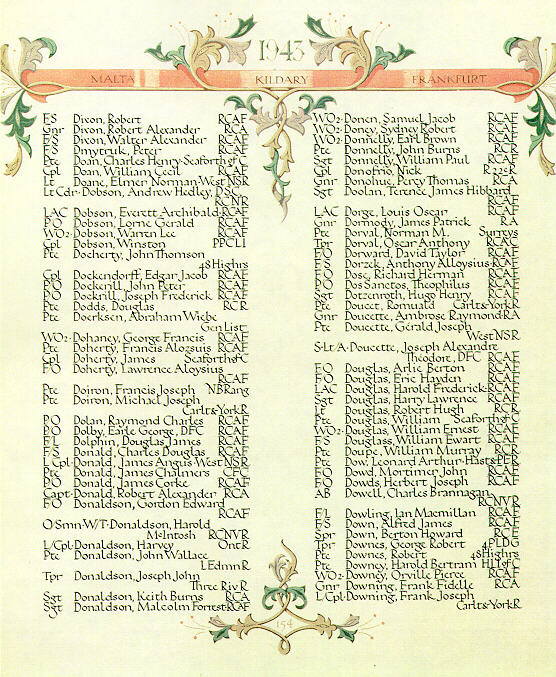 1943
MALTA KILDARY FRANKFURT
FS Dixon, Robert RCAF
Gnr Dixon, Robert Alexander RCA
FS Dixon, Walter Alexander RCAF
FS Dmytruk, Peter RCAF
Pte Doan, Charles Henry-Seaforth of C
Cpl Doan, William Cecil RCAF
Lt Doane, Elmer Norman-West NSR
Lt Cdr-Dobson, Andrew Hedley, DSC
RCNR
LAC Dobson, Everett Archibald-RCAF
P/O Dobson, Lorne Gerald RCAF
WO2-Dobson, Warren Lee RCAF
Cpl Dobson, Winston PPCLI
Pte Docherty, John Thomson
48 Highrs
Cpl Dockendorff, Edgar Jacob RCAF
P/O Dockerill, John Peter RCAF
P/O Dockrill, Joseph Frederick RCAF
Pte Dodds, Douglas RCR
Pte Doerksen, Abraham Wiebe
Gen List
WO2-Dohaney, George Francis RCAF
Pte Doherty, Francis Aloysuis RCAF
Cpl Doherty, James Seaforth of C
F/O Doherty, Lawrence Aloysius
RCAF
Pte Doiron, Francis Joseph NB Rang
Pte Doiron, Michael Joseph
Carlt & York R
P/O Dolan, Raymond Charles RCAF
P/O Dolby, Earle George, DFC RCAF
F/L Dolphin, Douglas James RCAF
F/S Donald, Charles Douglas RCAF
L/Cpl-Donald, James Angus-West NSR
Pte Donald, James Chalmers CFC
P/O Donald, James Corke RCAF
Capt-Donald, Robert Alexander RCA
F/O Donaldson, Gordon Edward
RCAF
O/Smn-W/T-Donaldson, Harold
McIntosh RCNVR
L/Cpl-Donaldson, Harvey Ont R
Pte Donaldson, John Wallace
L Edmn R
Tpr Donaldson, Joseph John
Three Riv R
Sgt Donaldson, Keith Burns RCA
Sgt Donaldson, Malcolm Forrest RCAF
WO2-Donen, Samuel Jacob RCAF
WO2-Doney, Sydney Robert RCAF
WO2-Donnelly, Earl Brown RCAF
Pte Donnelly, John Burns RCR
Sgt Donnelly, William Paul RCAF
Cpl Donofrio, Nick R 22e R
Gnr Donohue, Percy Thomas RCA
Sgt Doolan, Terence James Hibbard
RCAF
LAC Dorge, Louis Oscar RCAF
Gnr Dormody, James Patrick RA
Pte Dorval, Norman M. Surreys
Tpr Dorval, Oscar Anthony RCAC
F/O Dorward, David Taylor RCAF
F/S Dorzek, Anthony Alloysius RCAF
F/O Dose, Richard Herman RCAF
P/O Dos Santos, Theophilus RCAF
Sgt Dotzenroth, Hugo Henry RCAF
Pte Doucet, Romuald Carlt & York R
Gnr Doucette, Ambrose Raymond-RA
Pte Doucette, Gerald Joseph
West NSR
S-Lt/A-Doucette, Joseph Alexandre
Theodort, DFC RCAF
F/O Douglas, Arlie Berton RCAF
F/O Douglas, Eric Hayden RCAF
LAC Douglas, Harold Frederick RCAF
Sgt Douglas, Harry Lawrence RCAF
Lt Douglas, Robert Hugh RCR
Pte Douglas, William Seaforth of C
WO2-Douglas, William Ernest RCAF
F/S Douglass, William Ewart RCAF
Pte Doupe, William Murray RCR
Pte Dow, Leonard Arthur-Hast & PER
F/O Dowd, Mortimer John RCAF
F/O Dowds, Herbert Joseph RCAF
AB Dowell, Charles Brannagan
RCNVR
F/L Dowling, Ian Macmillan RCAF
F/S Down, Alfred James RCAF
Spr Down, Berton Howard RCE
Tpr Downes, George Robert 4 PLDG
Pte Downes, Robert 48 Highrs
Pte Downey, Harold Bertram HLI of C
WO2-Downey, Orville Pierce RCAF
Gnr Downing, Frank Fidelle RCA
L/Cpl-Downing, Frank Joseph
Carlt & York R
154